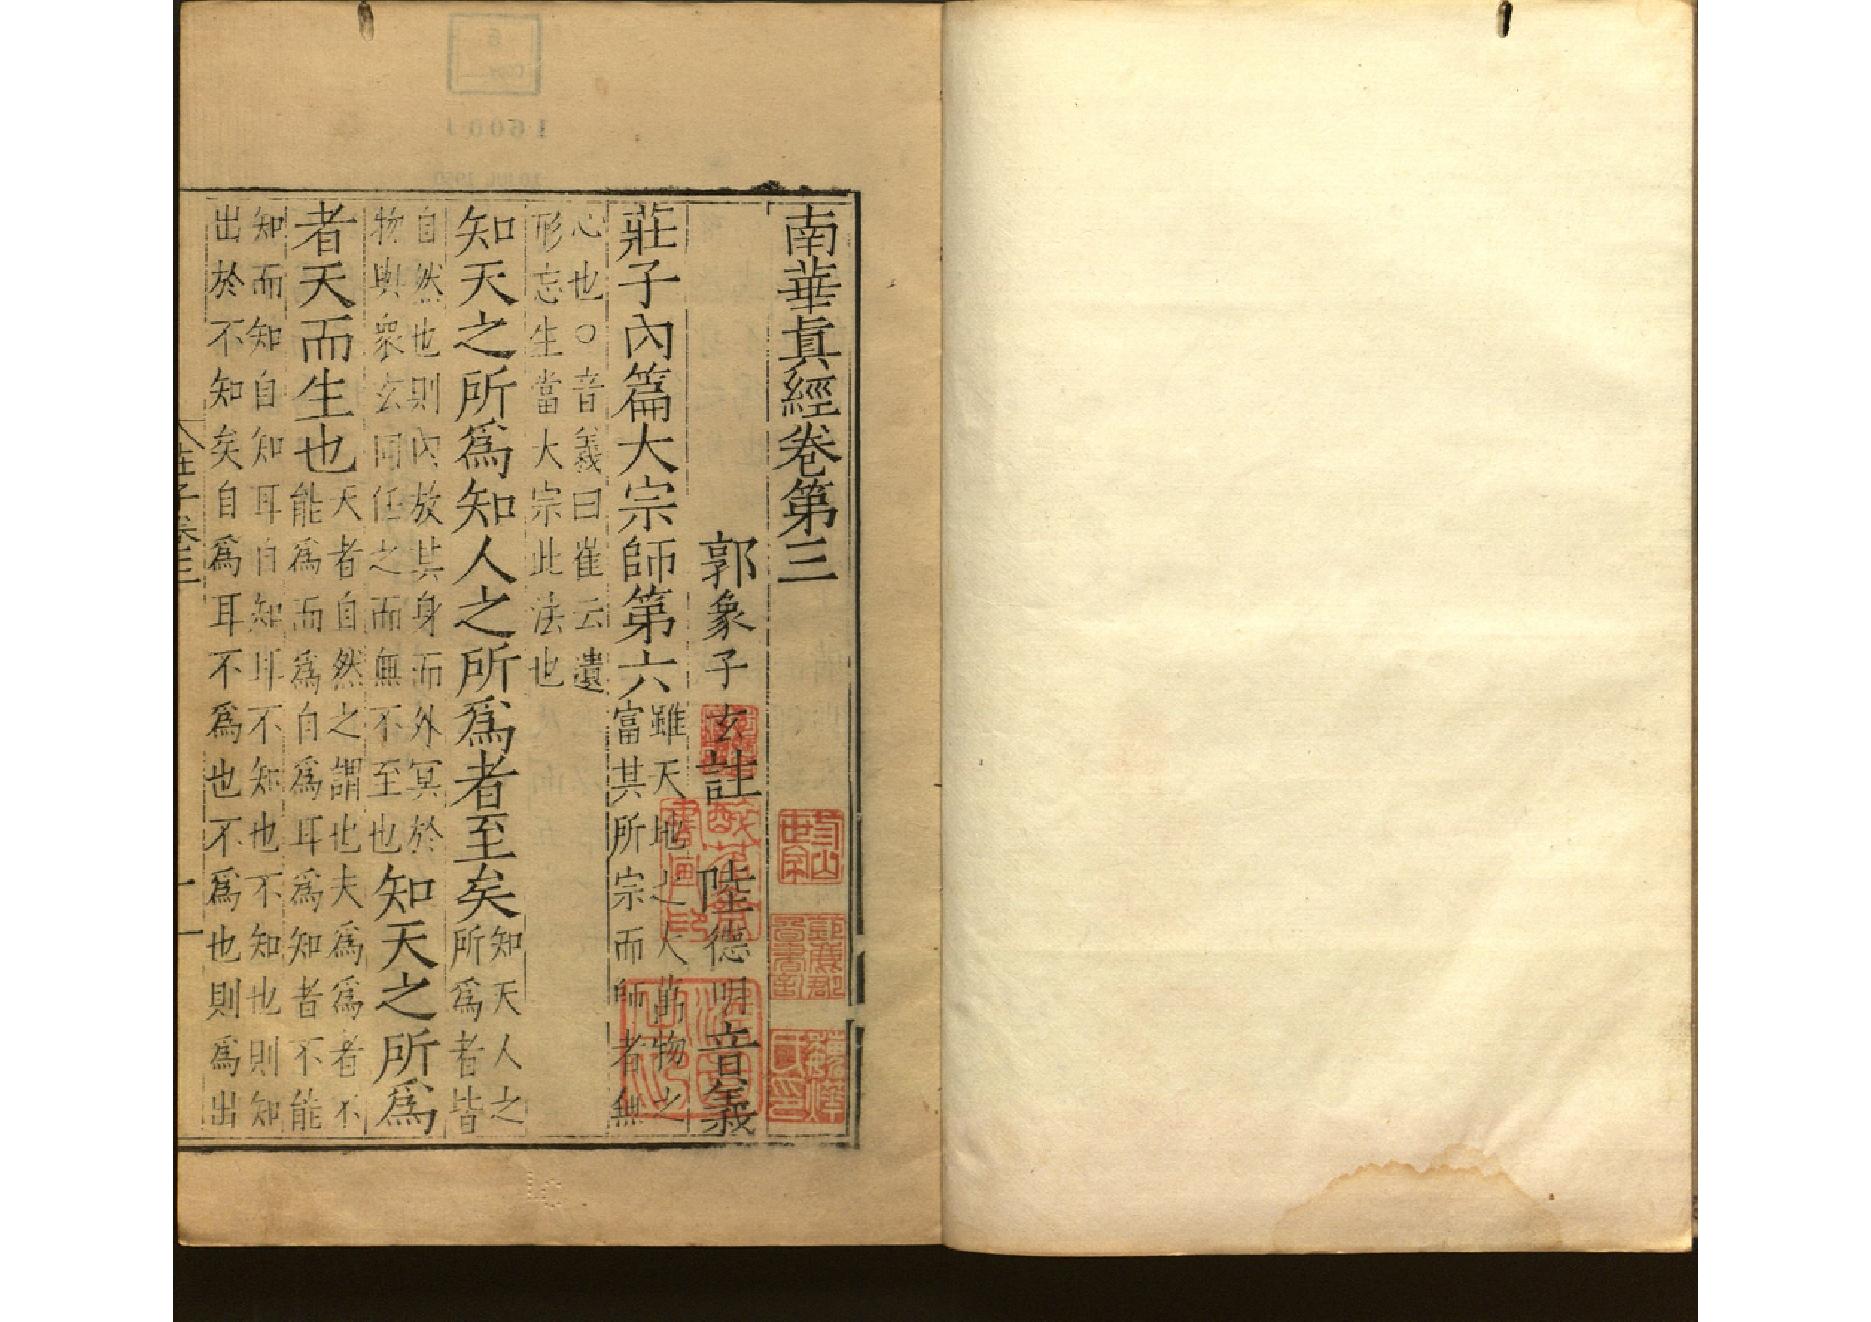 南華眞經卷第三
郭象子玄註 陸德明音義
莊子內篇大宗師第六雖天地之大萬物之富其所宗而師者無
心也○音義曰崔云遺形忘生當大宗此法也
知天之所爲知人之所爲者至矣知天人之所爲者皆
自然也則內放其身而外冥於物與衆玄同任之而無不至也知天之所爲
者天而生也天者自然之謂也夫爲爲者不能爲而爲自爲耳爲知者不能
知而知自知耳自知耳不知也不知也則知出於不知矣自爲耳不爲也不爲也則爲出
莊子卷三 一